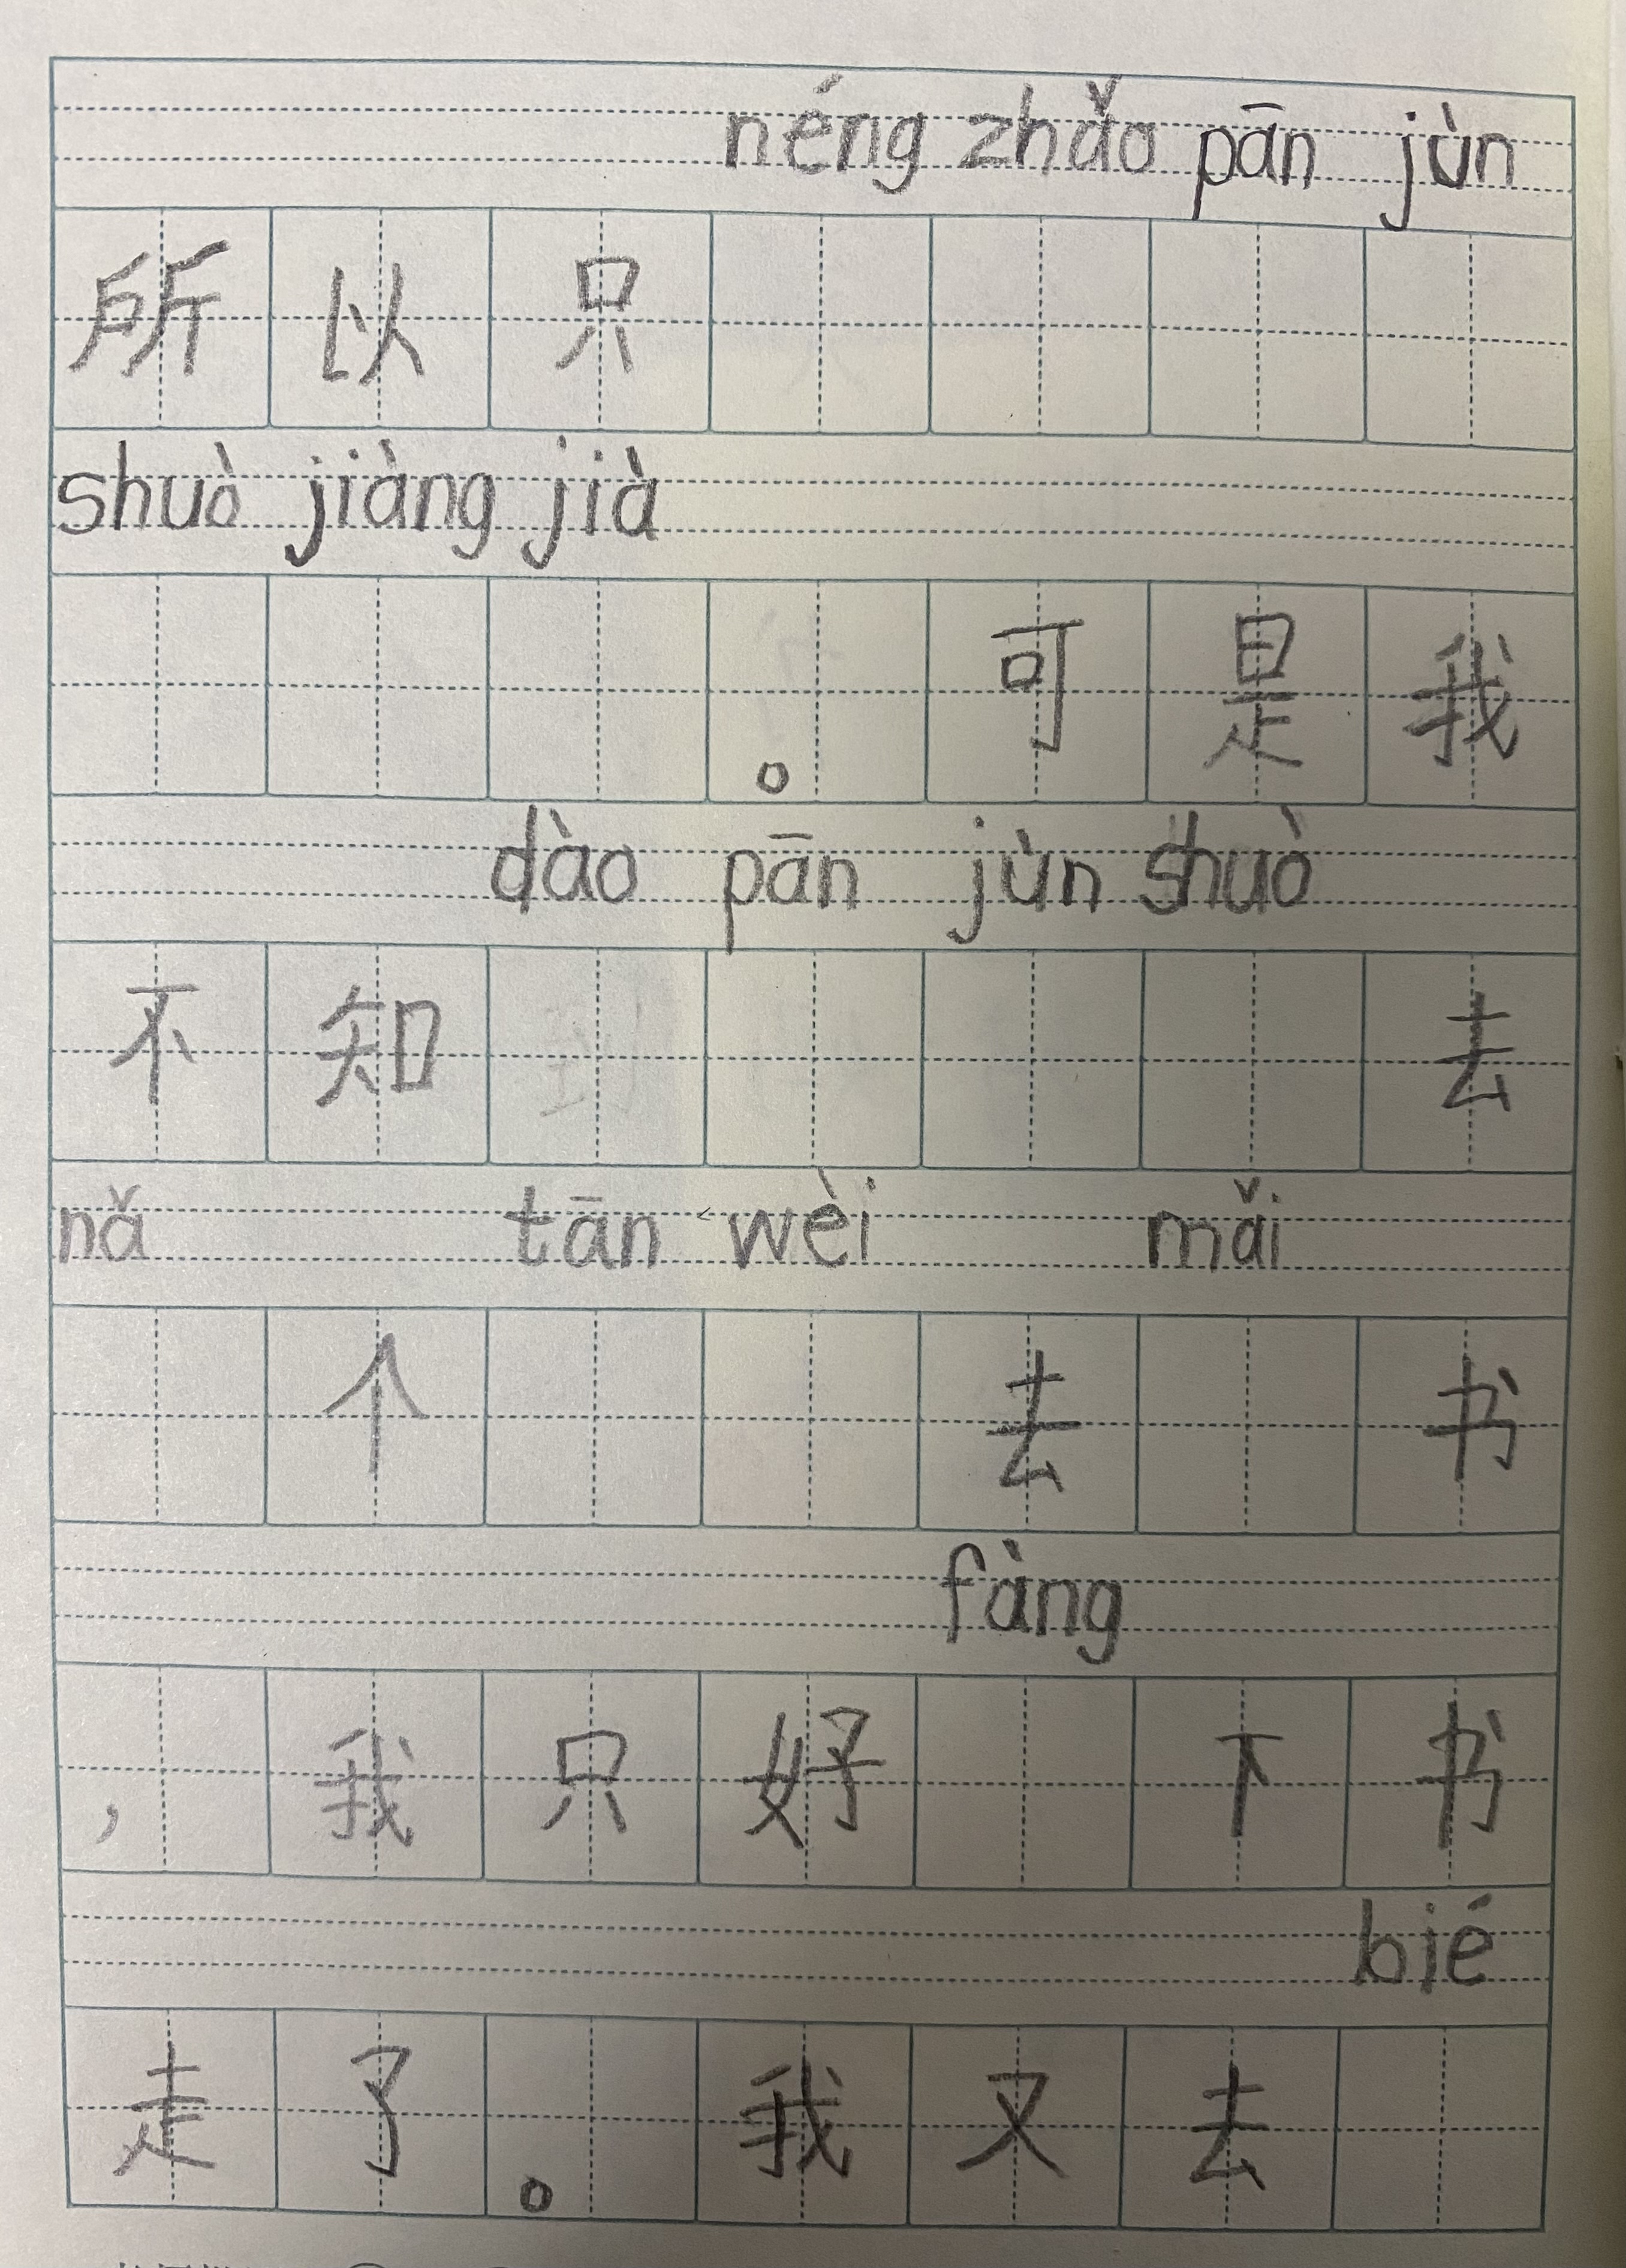 néng zhǎo pān jùn
所以只
shuò jiàng jià
。可是我
dào pān jùn shuò
不知去
nǎ tān wèi mǎi
个去书
fàng
，我只好下书
bié
走了。我又去